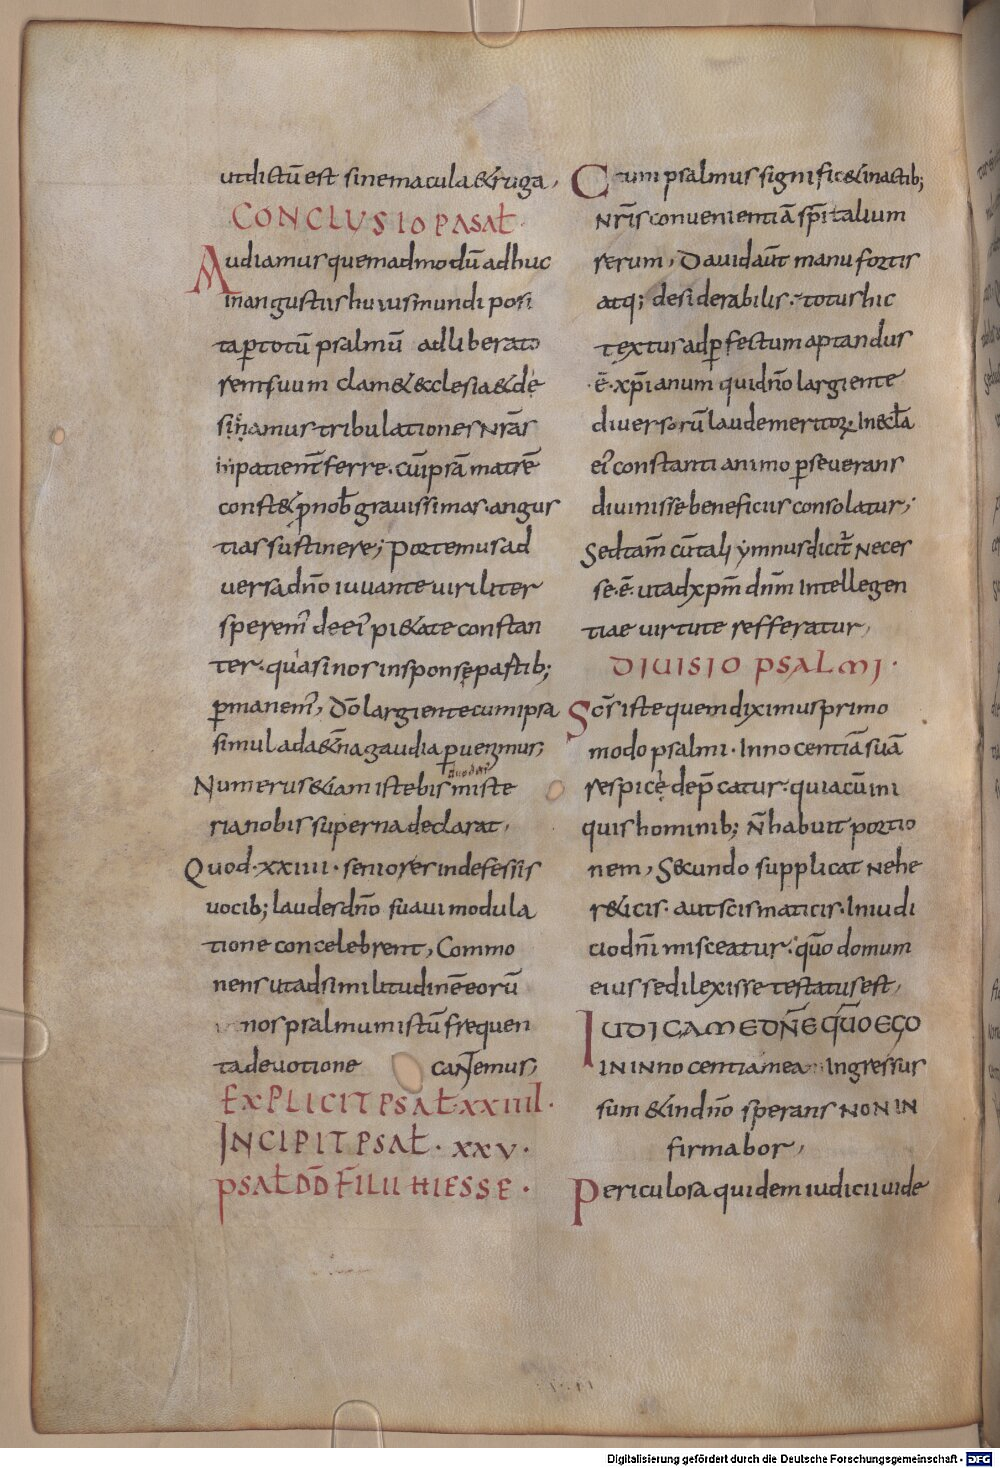 utdictū est sine macula & ruga,
CONCLUSIO PASAŁ
Audiamus quemadmodū adhuc
in angustiis huius mundi posi
ta ꝑ totū psalmū ad liberato
rem suum clam& ecclesia & de
si̅namus tribulationes nr̅as
inpatient̅ ferre. cū ipsā matrē
const& ꝓ nob̅ grauissimas angus
tias sustinere; Portemus ad
uersa dn̅o iuuante uiriliter
sperem̅ de ei̅ pi&ate constan
ter. quasi nos in sponse pastib;
ꝑmanem̅, dn̅o largiente cum ipsa
simul ad a&̅na gaudia ꝑuenimus;
Numerus &iam iste bis miste
ria nobis superna declarat,
Quod·xxiiii·seniores indefessis
uocib; laudes dn̅o suaui modula
tione concelebrent, Commo
nens ut ad similitudinē eorū
nos psalmum istū frequen
ta deuotione cantemus;
EXPLICIT PSAŁ XXIIII·
INCIPIT PSAŁ·XXV·
PSAŁ DD̅ FILII HIESSE·
Cum psalmus signific& in actib;
nr̅is conuenientiā sp̅italium
rerum, Dauid aut̅ manu fortis
atq; desiderabilis. totus hic
textus ad ꝑfectum aptandus
·ē·xp̅ianum qui dn̅o largiente
diuersorū laude meritoꝝ. In eccl̅a
ei̅ constanti animo ꝑseuerans
diuinis se beneficiis consolatur;
Sed tam̅ cū tali ymnus dicit̅ neces
se·ē· ut ad xp̅m dn̅m intellegen
tiae uirtute refferatur,
DIUISIO PSALMI·
Sc̅s iste quem diximus primo
modo psalmi·Innocentiā suā
respicē dep̅catur. quia cū ini
quis hominib; n̅ habuit portio
nem, Secundo supplicat ne he
r&icis· aut scismaticis·In iudi
cio dn̅i misceatur. qn̅o domum
eius se dilexisse testatus est,
IUDICA ME DN̅E QN̅O EGO
IN INnocentia mea ingressus
sum & in dn̅o sperans NON IN
firmabor,
Periculosa quidem iudicii uide
Digitalisierung gefördert durch die Deutsche Forschungsgemeinschaft - DFG